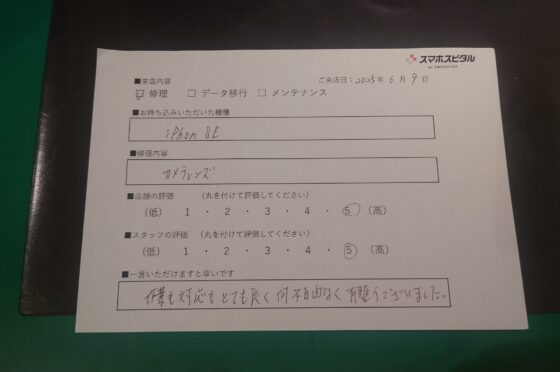 スマホスピタル
■来店内容
ご来店日：2025年 6月 9日
☑ 修理 □ データ移行 □ メンテナンス
■お持ち込みいただいた機種
iPhon SE
■修理内容
カメラレンズ
■店舗の評価 （丸を付けて評価してください）
（低） 1 ・ 2 ・ 3 ・ 4 ・ 5 （高）
■スタッフの評価 （丸を付けて評価してください）
（低） 1 ・ 2 ・ 3 ・ 4 ・ 5 （高）
■一言いただけますと幸いです
作業も対応もとても良く何不自由なく有難うございました。